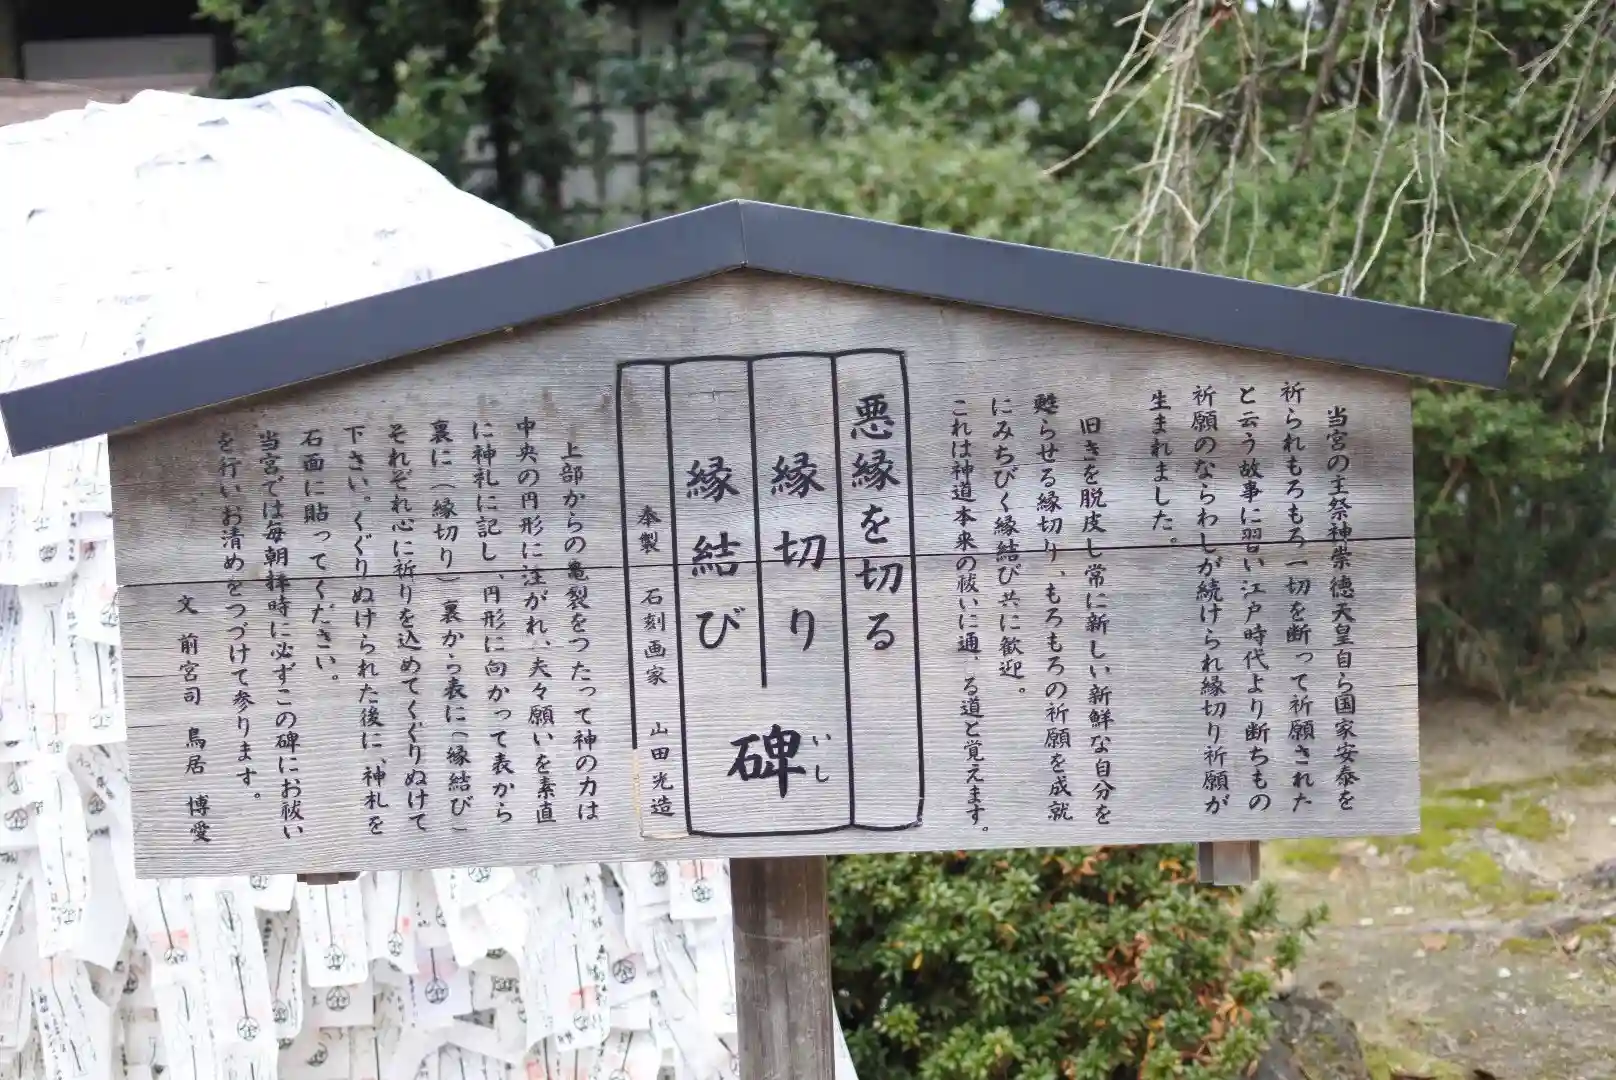 当宮の主祭神崇徳天皇自ら国家安泰を
祈られもろもろ一切を断って祈願された
と云う故事に習い江戸時代より断ちもの
祈願のならわしが続けられ縁切り祈願が
生まれました。
旧きを脱皮し常に新しい新鮮な自分を
甦らせる縁切り、もろもろの祈願を成就
にみちびく縁結び共に歓迎。
これは神道本来の祓いに通、る道と覚えます。
悪縁を切る
縁切り
縁結び
碑
いし
奉製 石刻画家 山田光造
上部からの亀裂をつたって神の力は
中央の円形に注がれ、夫々願いを素直
に神札に記し、円形に向かって表から
裏に（縁切り）裏から表に（縁結び）
それぞれ心に祈りを込めてくぐりぬけて
下さい。くぐりぬけられた後に、神札を
石面に貼ってください。
当宮では毎朝拝時に必ずこの碑にお祓い
を行いお清めをつづけて参ります。
文 前宮司 鳥居 博愛